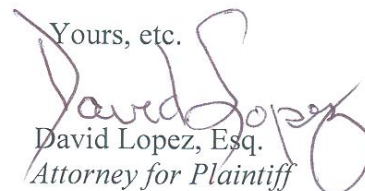 Yours, etc.
David Lopez
David Lopez, Esq.
Attorney for Plaintiff